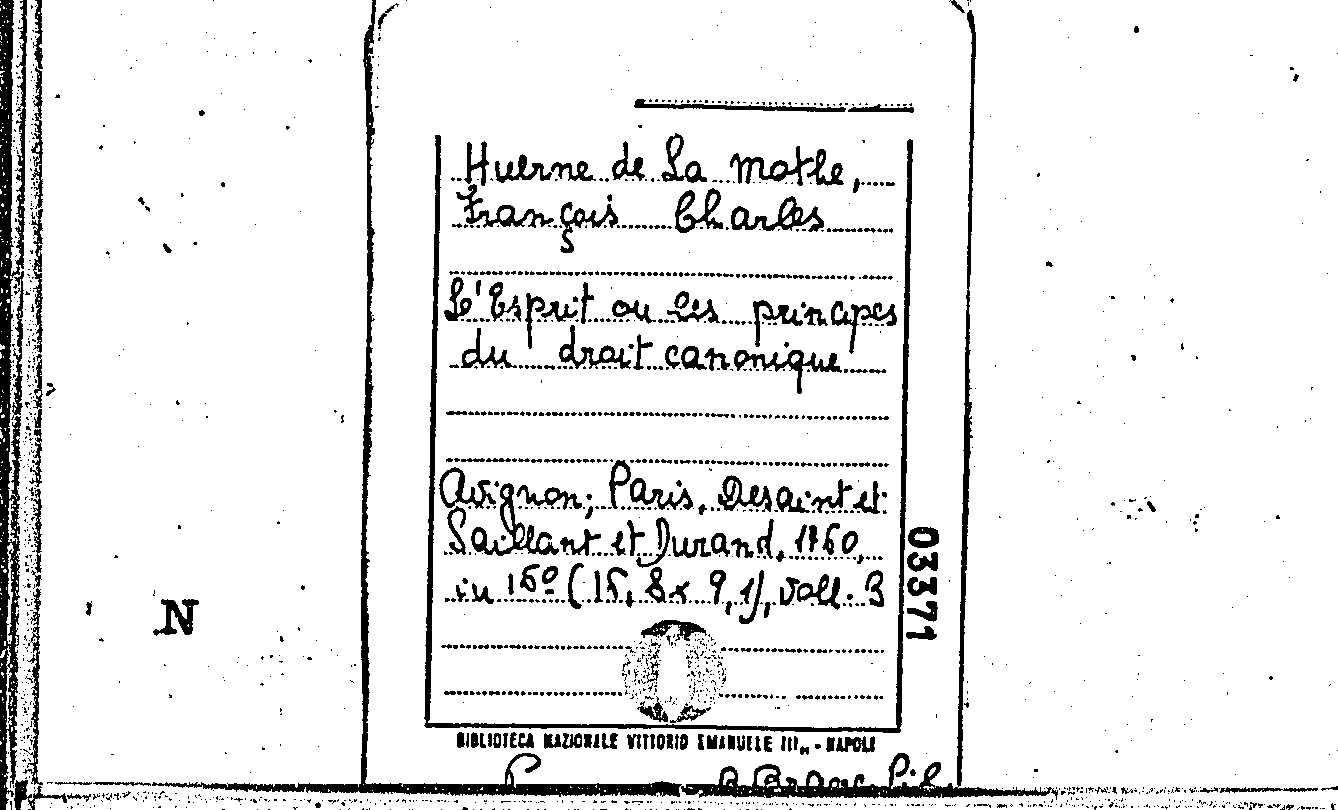 Huerne de La Mothe,
François Charles
L'Esprit ou les principes
du droit canonique
Avignon; Paris, Desaint et
Saillant et Durand, 1760,
in 16º (15,8x9,1), voll. 3
03371
N
BIBLIOTECA NAZIONALE VITTORIO EMANUELE III,, - NAPOLI